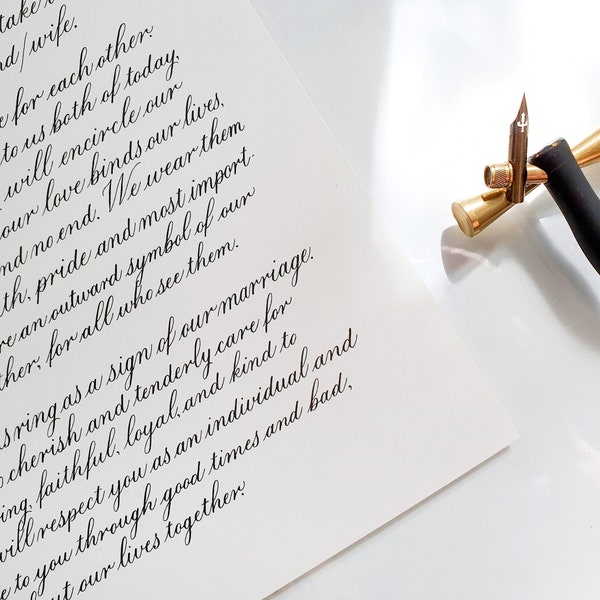 take
nd/wife.
e for each other.
to us both of today,
will encircle our
our love binds our lives,
nd no end. We wear them
th, pride and most import-
re an outward symbol of our
ther, for all who see them.
s ring as a sign of our marriage.
o cherish and tenderly care for
ing, faithful, loyal, and kind to
will respect you as an individual and
e to you through good times and bad,
out our lives together.